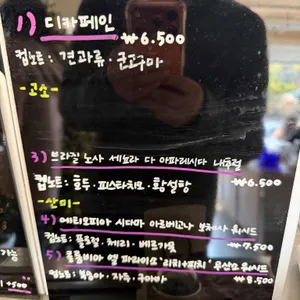 1) 디카페인
₩6.500
컵노트 : 견과류 · 군고구마
-고소-
3) 브라질 노사 세뇨라 다 아파레시다 내추럴
컵노트 : 호두 · 피스타치오 · 황설탕 ₩6.500
-산미-
4) 에티오피아 시다마 아르베고나 보체사 워시드
컵노트 : 플로럴 · 체리 · 베르가못 ₩7.500
5) 콜롬비아 엘 파라이소 "리치+피치" 무산소 워시드
컵노트 : 복숭아 · 자두 · ₩8.500
가능
+500